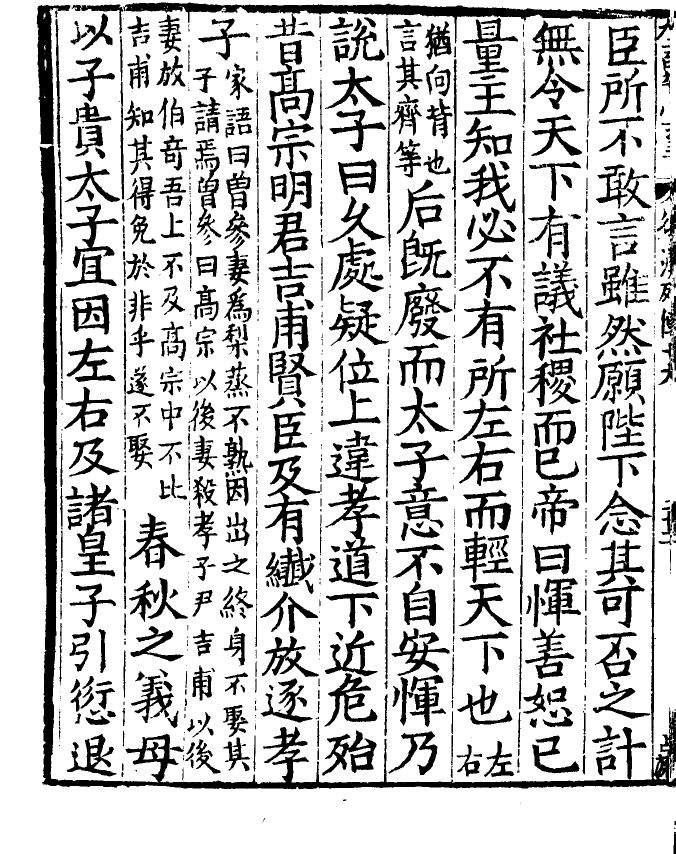 臣所不敢言雖然願陛下念其可否之計
無令天下有議社稷而已帝曰惲善恕己
量主知我必不有所左右而輕天下也左右
猶向背也言其齊等后既廢而太子意不自安惲乃
說太子曰久處疑位上違孝道下近危殆
昔高宗明君吉甫賢臣及有纎介放逐孝
子家語曰曾參妻爲梨蒸不熟因出之終身不娶其子請焉曾參曰高宗以後妻殺孝子尹吉甫以後
妻放伯奇吾上不及高宗中不比吉甫知其得免於非乎遂不娶春秋之義母
以子貴太子宜因左右及諸皇子引愆退